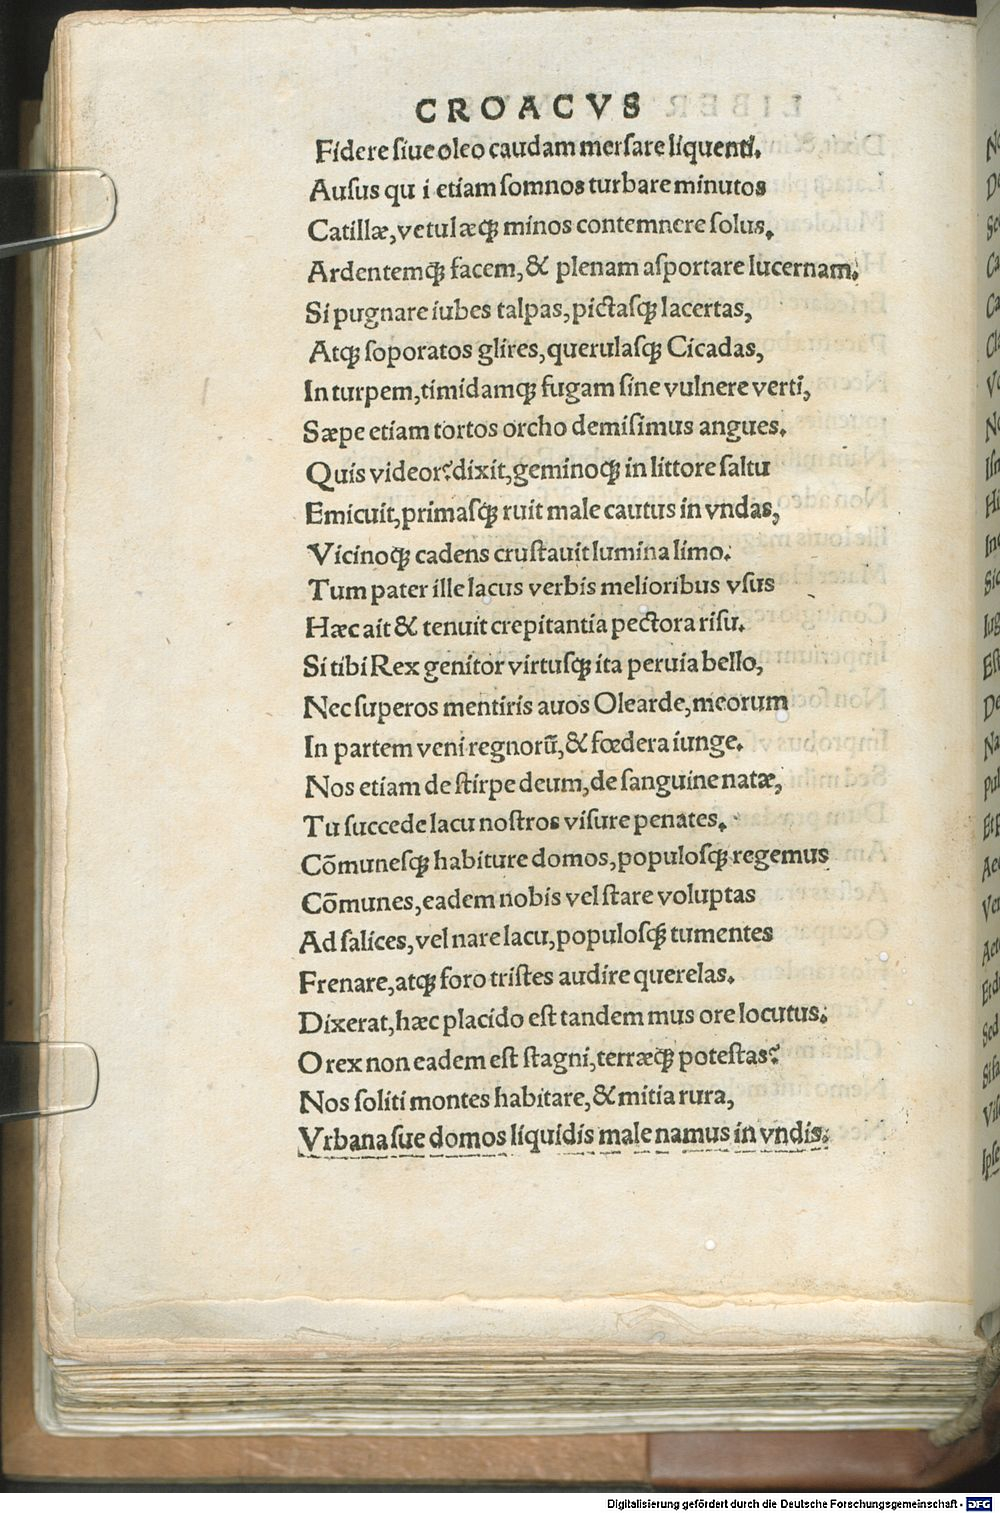 CROACVS
Fidere ſiue oleo caudam merſare liquenti.
Auſus qu i etiam ſomnos turbare minutos
Catillæ, vetulæq́ꝫ minos contemnere ſolus.
Ardentemq́ꝫ facem, & plenam aſportare lucernam.
Si pugnare iubes talpas, pictaſq́ꝫ lacertas,
Atqꝫ ſoporatos glires, querulaſq́ꝫ Cicadas,
In turpem, timidamq́ꝫ fugam ſine vulnere verti,
Sæpe etiam tortos orcho demiſimus angues.
Quis videor? dixit, geminoq́ꝫ in littore ſaltu
Emicuit, primaſq́ꝫ ruit male cautus in vndas,
Vicinoq́ꝫ cadens cruſtauit lumina limo.
Tum pater ille lacus verbis melioribus vſus
Hæc ait & tenuit crepitantia pectora riſu.
Si tibi Rex genitor virtuſq́ꝫ ita peruia bello,
Nec ſuperos mentiris auos Olearde, meorum
In partem veni regnorū, & fœdera iunge.
Nos etiam de ſtirpe deum, de ſanguine natæ,
Tu ſuccede lacu noſtros viſure penates.
Cōmuneſq́ꝫ habiture domos, populoſq́ꝫ regemus
Cōmunes, eadem nobis vel ſtare voluptas
Ad ſalices, vel nare lacu, populoſq́ꝫ tumentes
Frenare, atqꝫ foro triſtes audire querelas.
Dixerat, hæc placido eſt tandem mus ore locutus.
O rex non eadem eſt ſtagni, terræq́ꝫ poteſtas?
Nos ſoliti montes habitare, & mitia rura,
Vrbanaſue domos liquidis male namus in vndis.
Digitalisierung gefördert durch die Deutsche Forschungsgemeinschaft - DFG